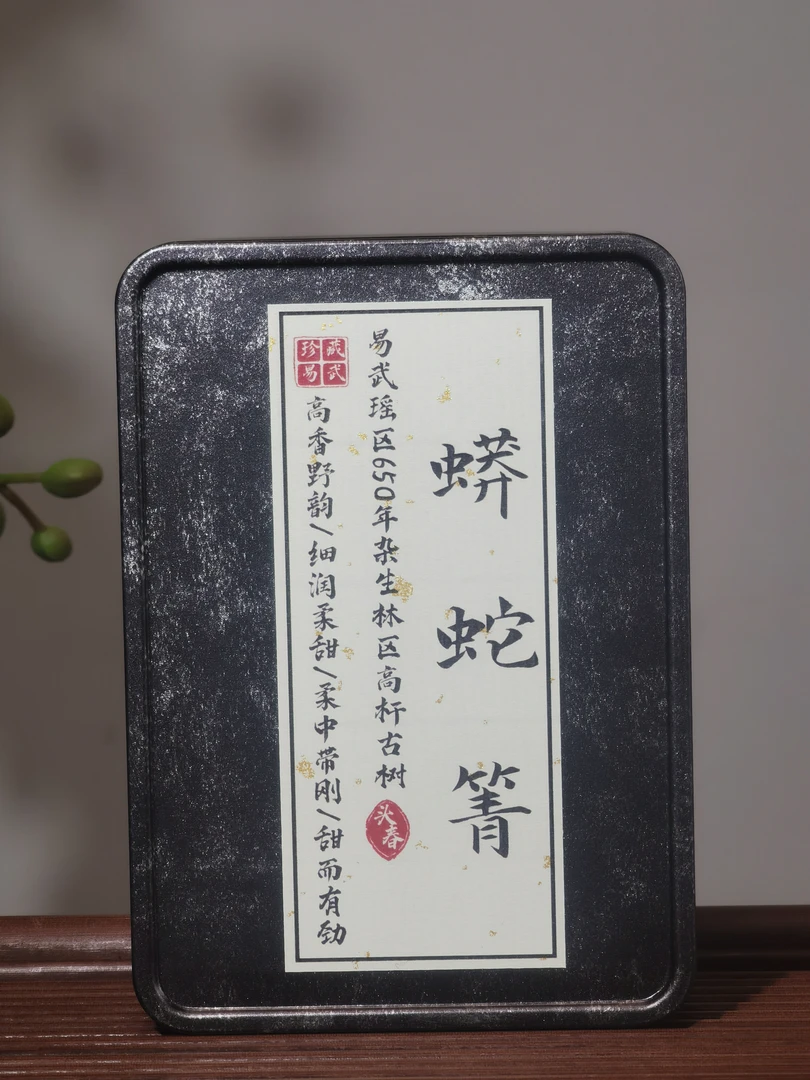 蟒蛇箐
易武瑶区650年杂生林区高杆古树
头春
珍藏易武
高香野韵/细润柔甜/柔中带刚/甜而有劲